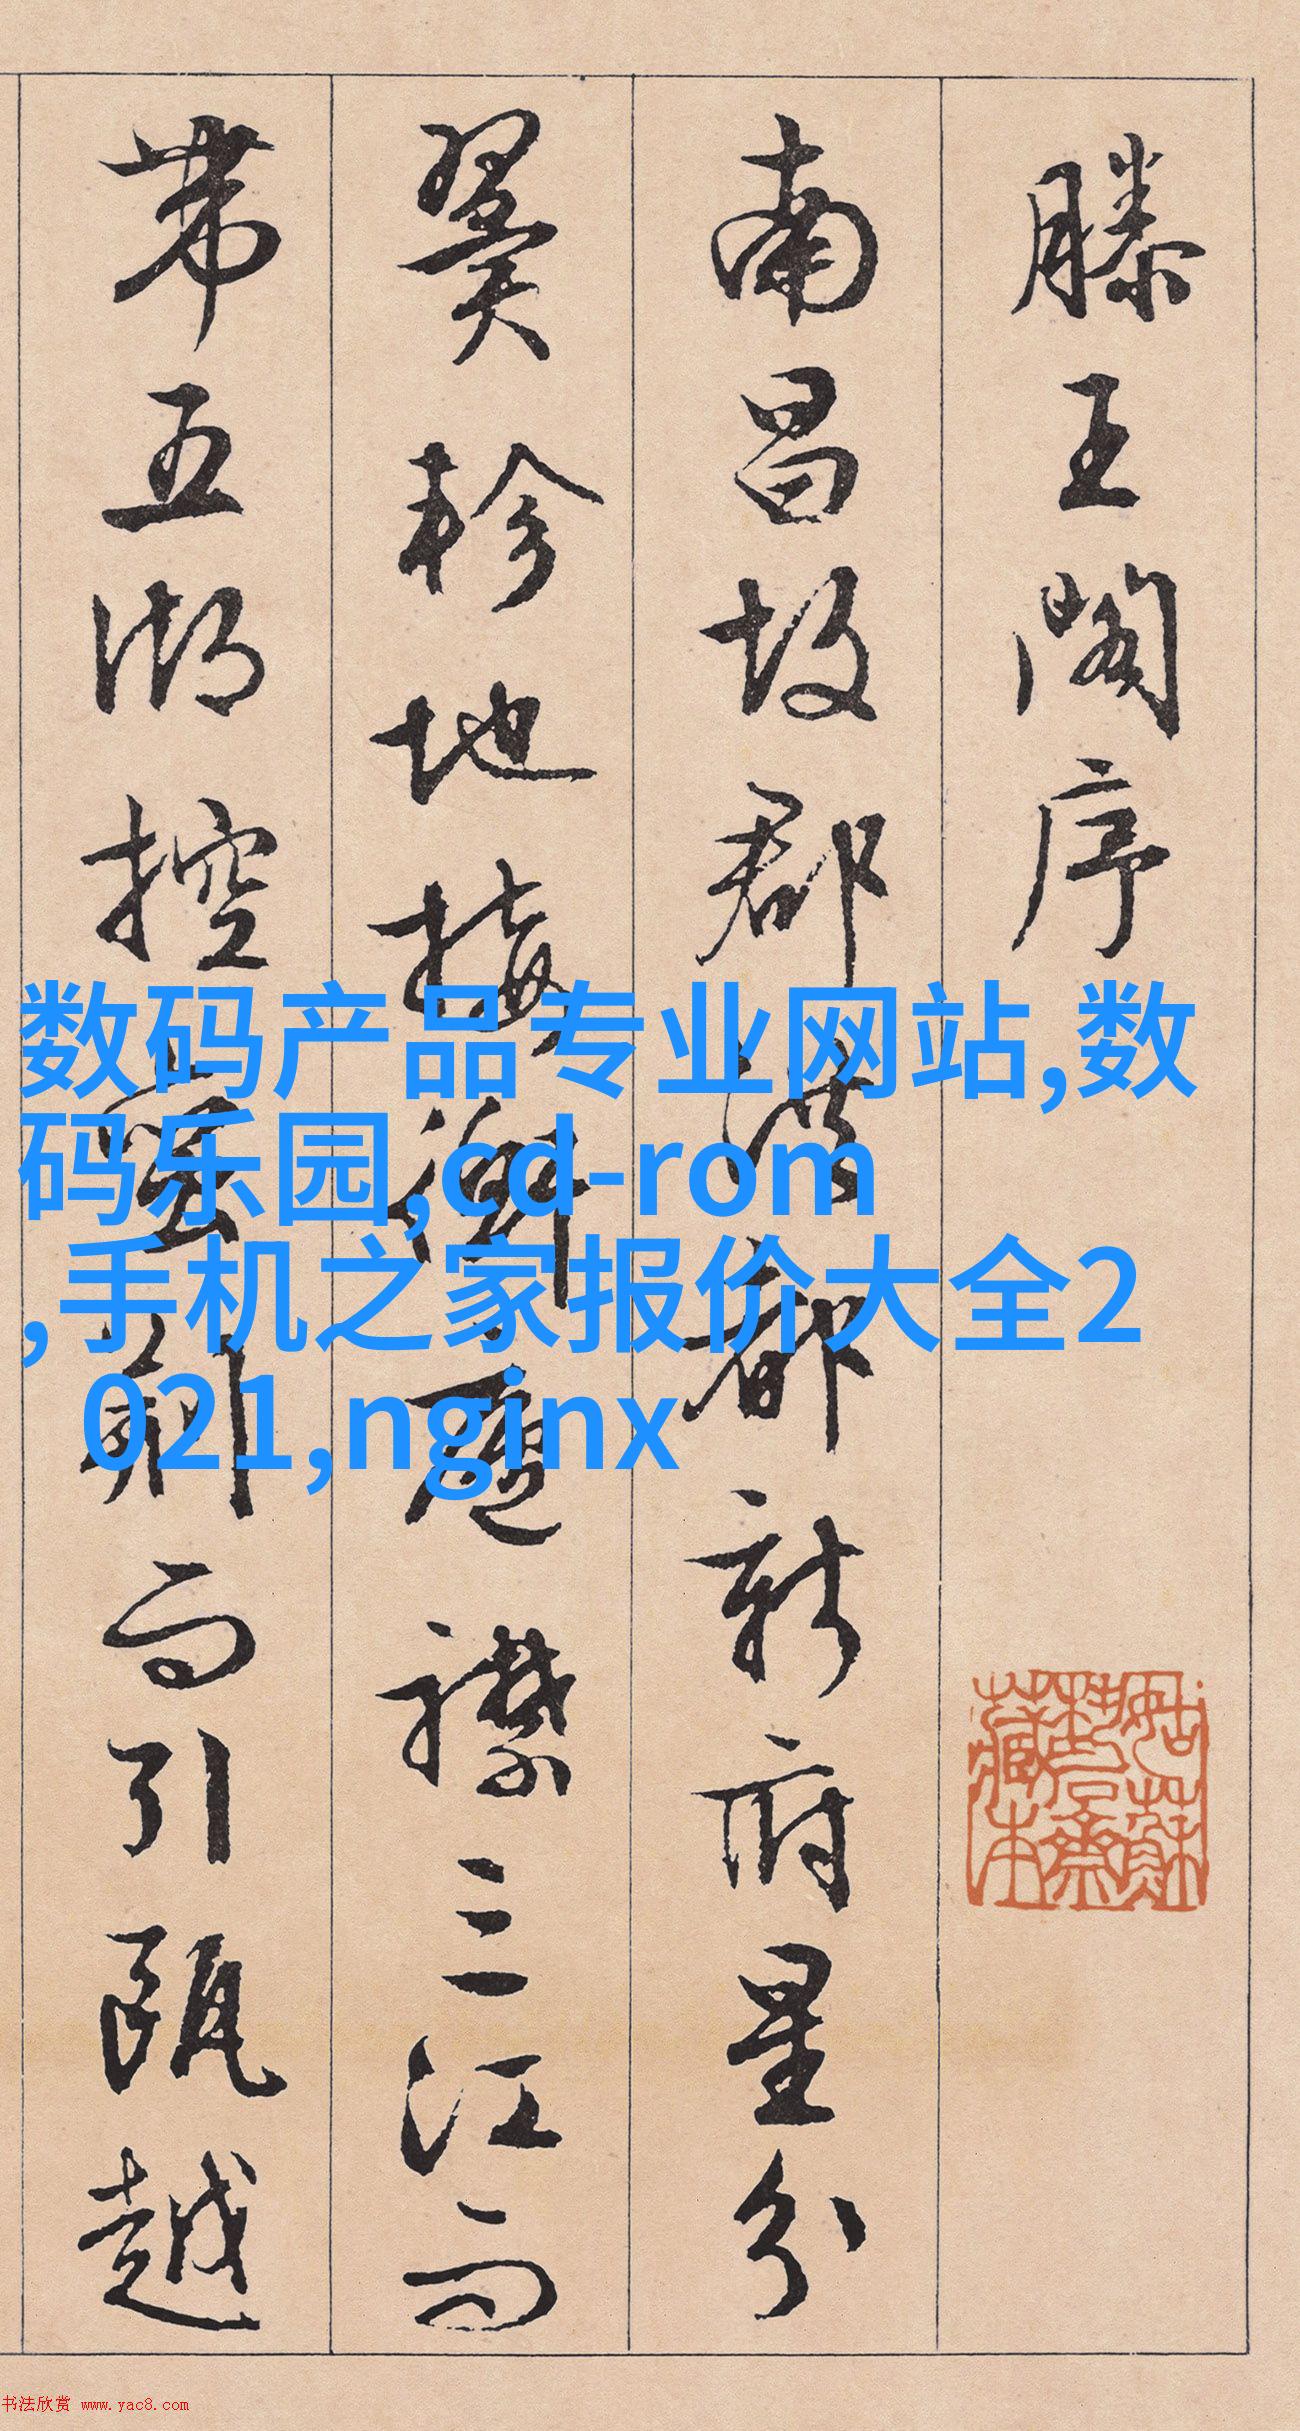 滕王閣序
南昌故郡洪都新府星分
翼軫地接衡廬襟三江而
帶五湖控蠻荊而引甌越
数码产品专业网站,数
码乐园,cd-rom
,手机之家报价大全2
021,nginx
书法欣赏 www.yac8.com